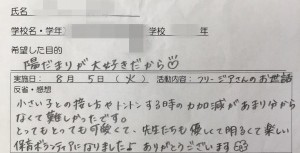 氏名
学校名・学年 学校 年
希望した目的
陽だまりが大好きだから♡
実施日: 8月5日(火) 活動内容: フリージアさんのお世話
反省・感想
小さい子との接し方やトントンする時の力加減があまり分から
なくて難しかったです。
とってもとっても可愛くて、先生たちも優しくて明るくて楽しい
保育ボランティアになりましたよ ありがとうございます